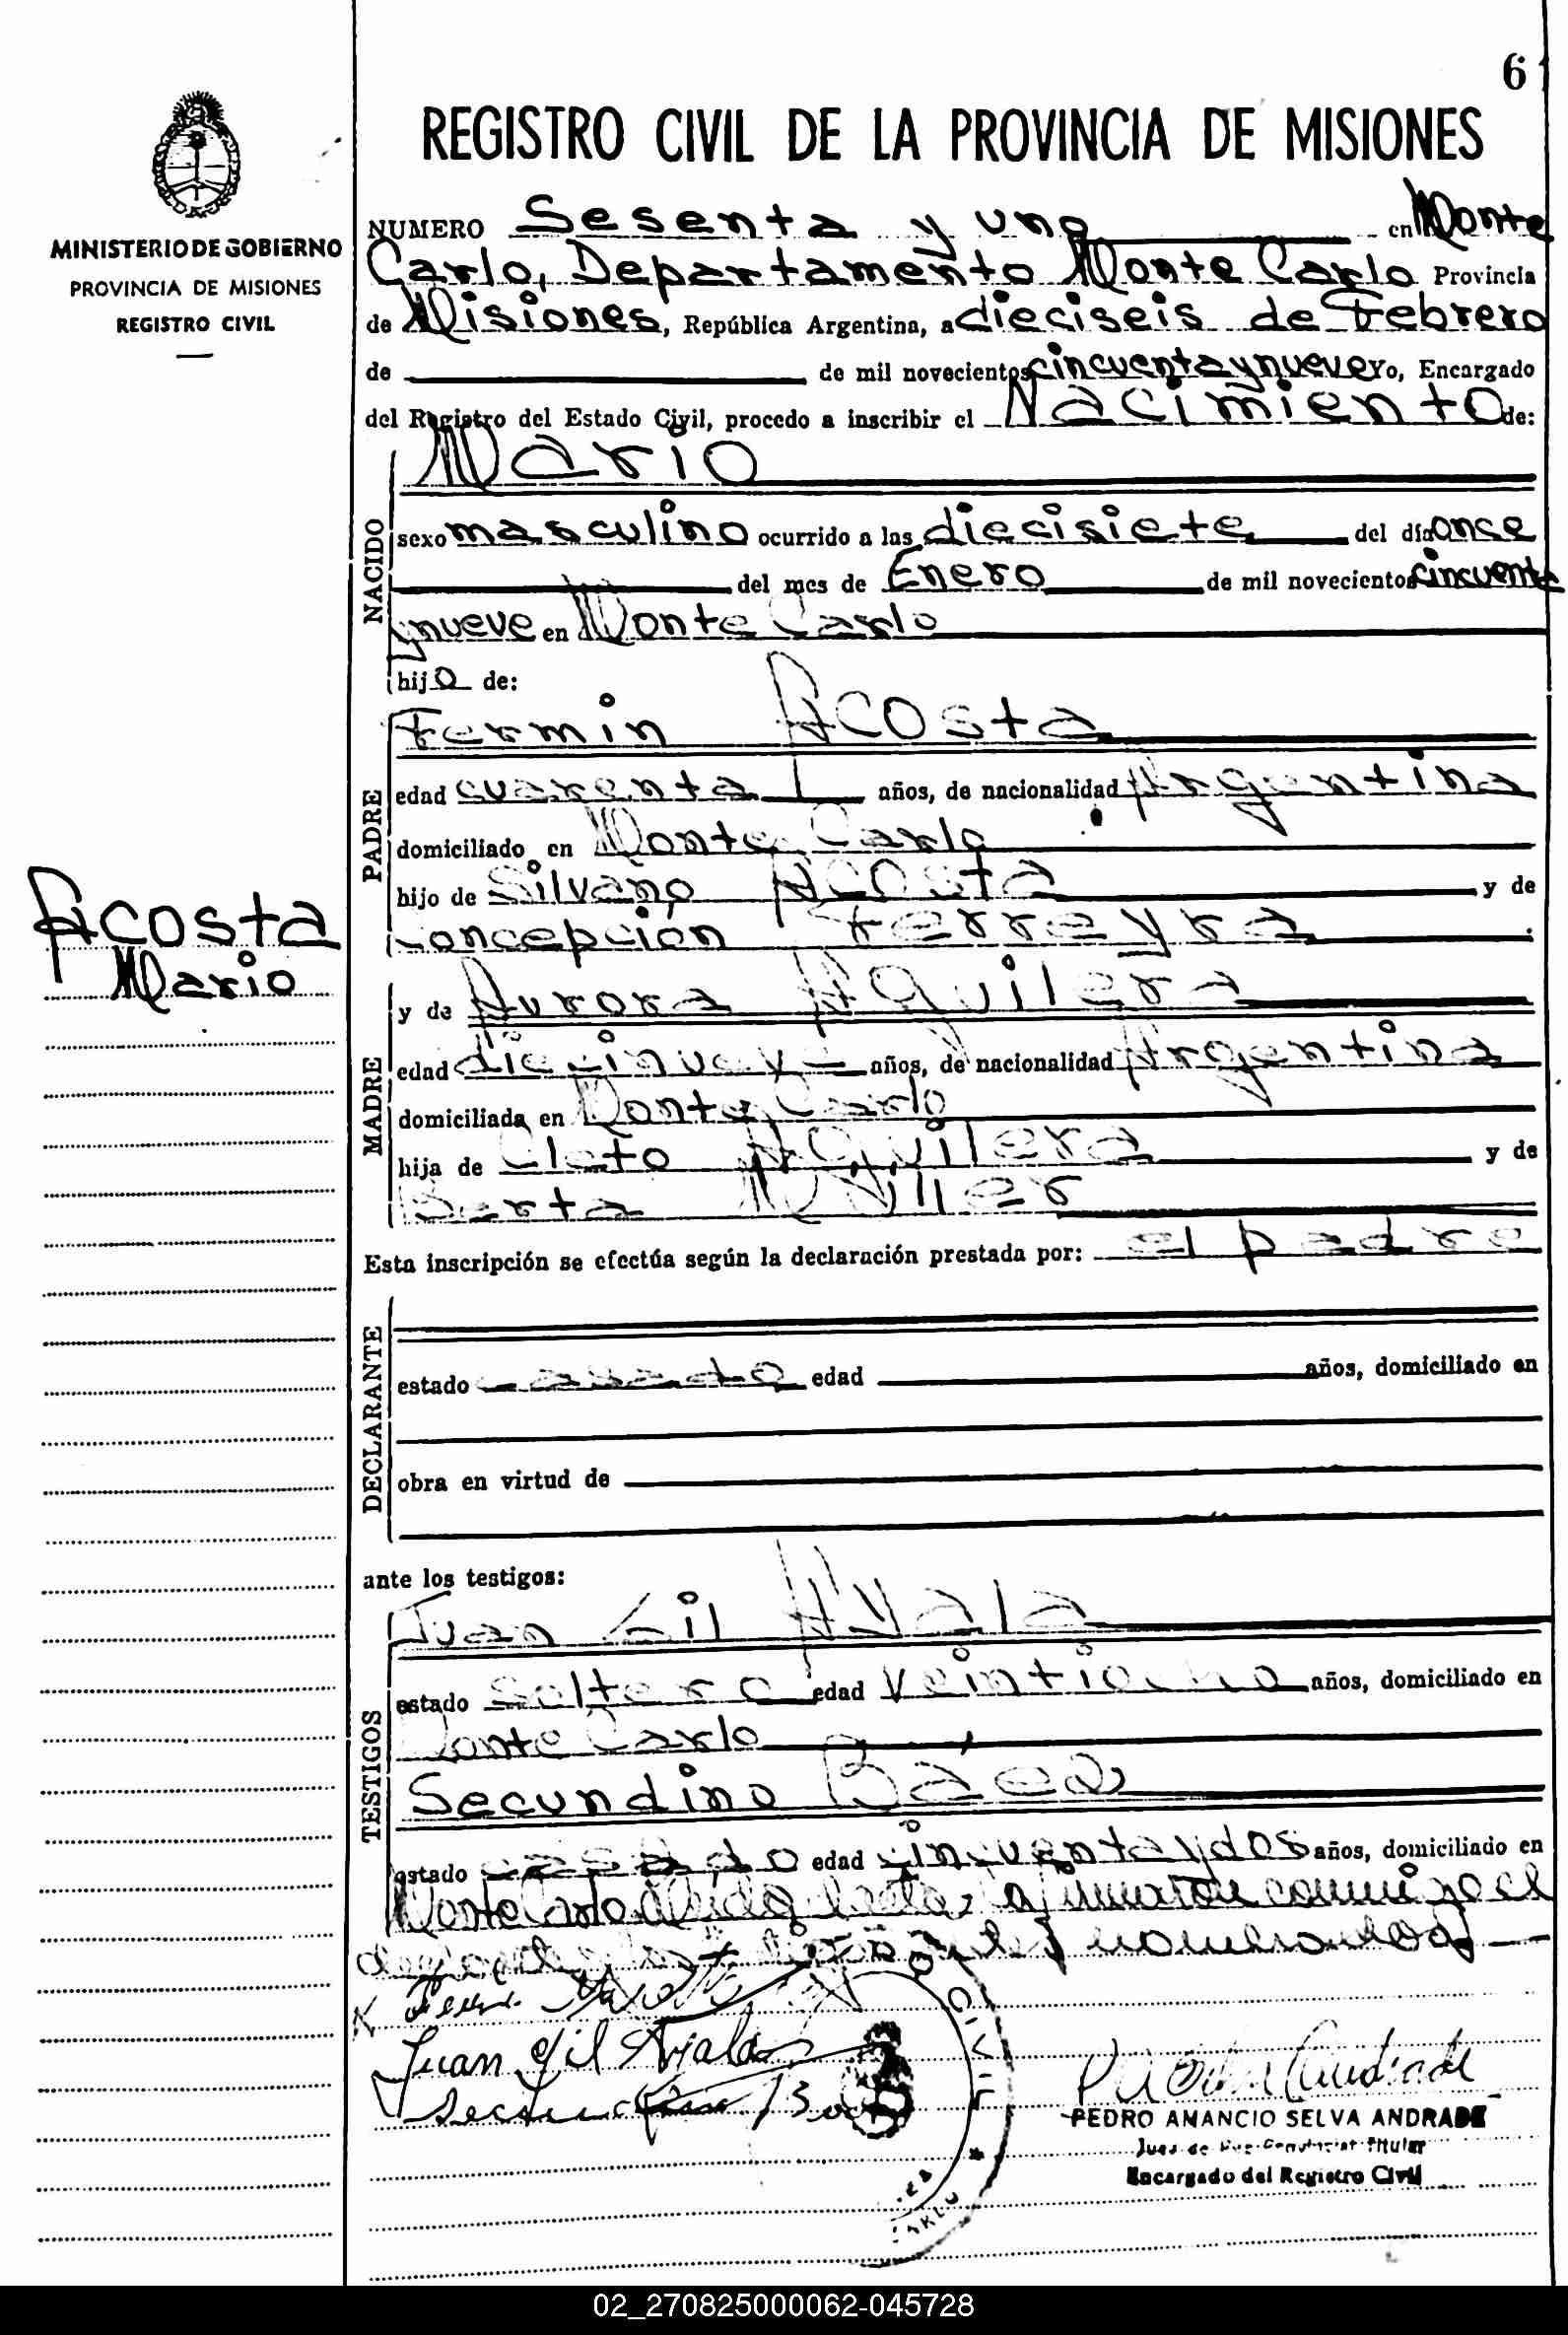 61
REGISTRO CIVIL DE LA PROVINCIA DE MISIONES
MINISTERIO DE GOBIERNO
PROVINCIA DE MISIONES
REGISTRO CIVIL
NUMERO Sesenta y uno en Monte
Carlo, Departamento Monte Carlo Provincia
de Misiones, República Argentina, a dieciseis de Febrero
de de mil novecientos cincuenta y nueve Yo, Encargado
del Registro del Estado Civil, procedo a inscribir el Nacimiento de:
NACIDO
Mario
sexo masculino ocurrido a las diecisiete del día once
del mes de Enero de mil novecientos cincuenta
y nueve en Monte Carlo
hijo de:
PADRE
Fermin Acosta
edad cuarenta años, de nacionalidad Argentina
domiciliado en Monte Carlo
hijo de Silvano Acosta y de
Concepcion Ferreyra
Acosta
Mario
MADRE
y de Aurora Aguilera
edad diecinueve años, de nacionalidad Argentina
domiciliada en Monte Carlo
hija de Cleto Aguilera y de
Berta Muller
Esta inscripción se efectúa según la declaración prestada por: el padre
DECLARANTE
estado casado edad años, domiciliado en
obra en virtud de
ante los testigos:
TESTIGOS
Juan Gil Ayala
estado Soltero edad Veintiocho años, domiciliado en
Monte Carlo
Secundino Báez
estado casado edad cincuenta y dos años, domiciliado en
Monte Carlo Leida acta, la firmaron conmigo el
y los testigos nombrados
Juan Gil Ayala
CIVIL
PEDRO AMANCIO SELVA ANDRADE
Juez de Paz Titular
Encargado del Registro Civil
02_270825000062-045728